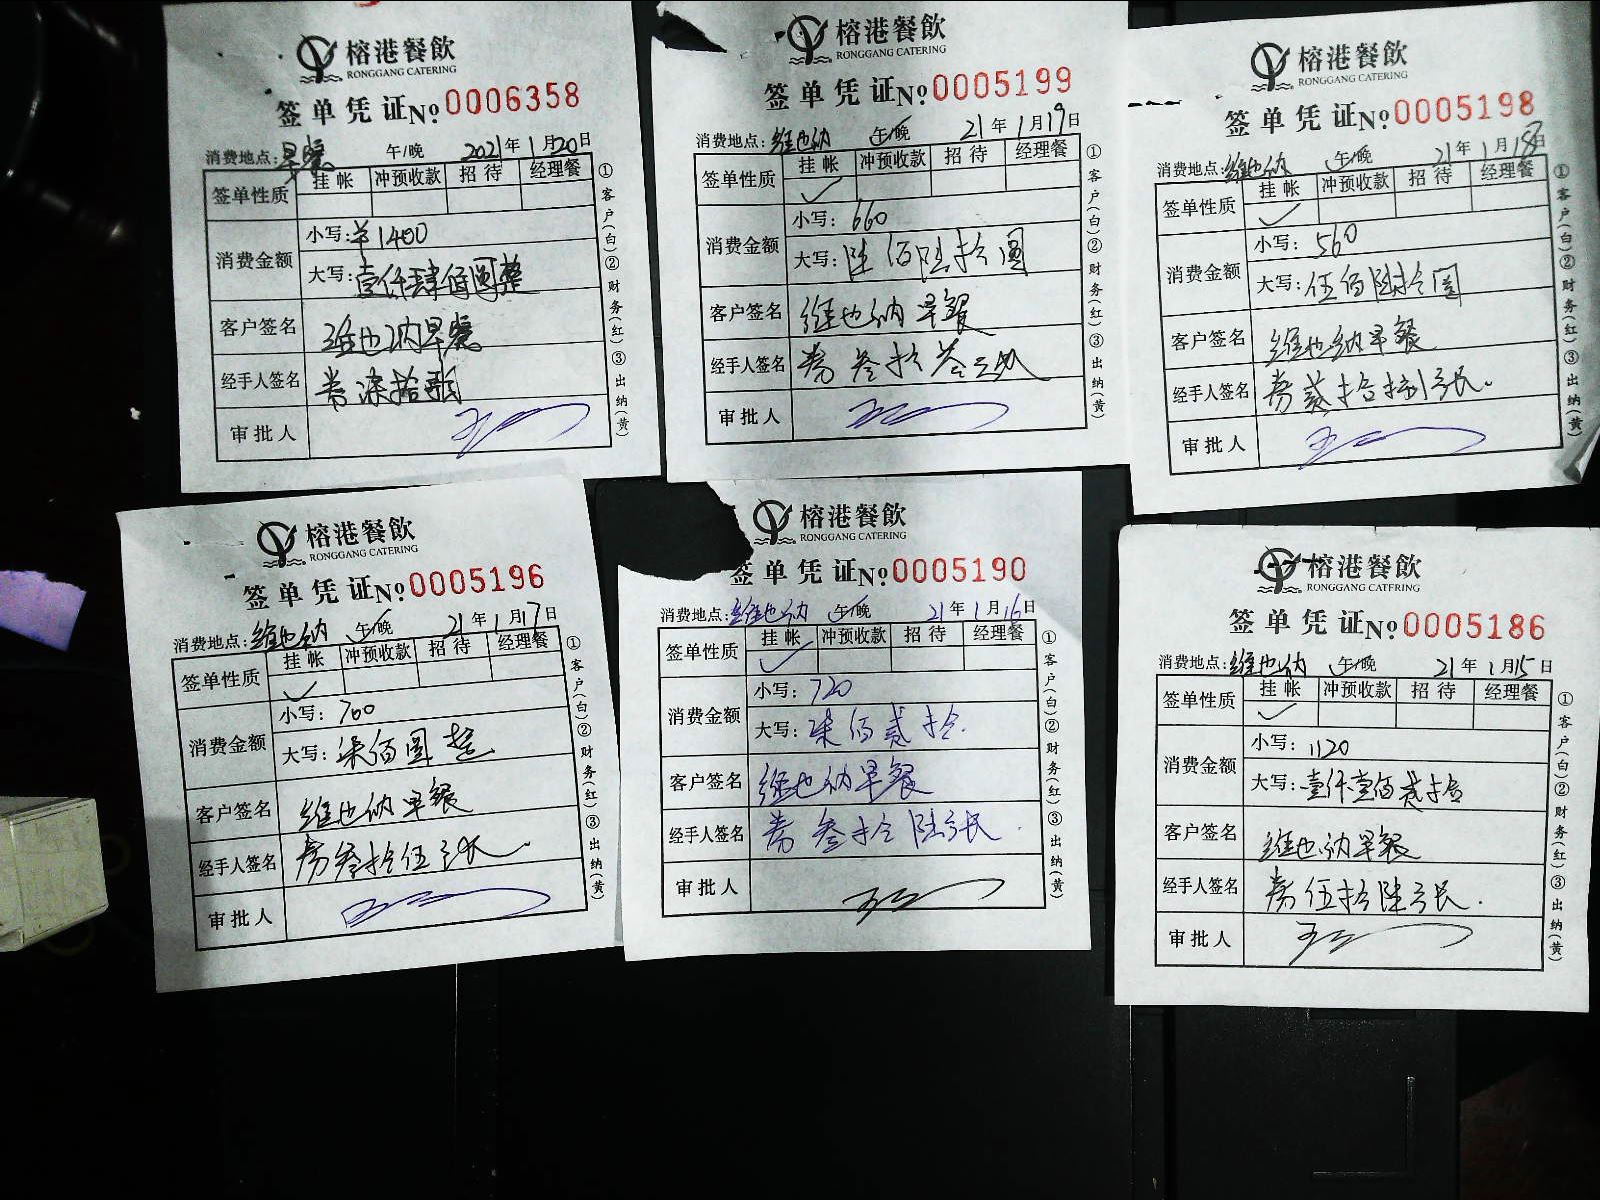 榕港餐飲
RONGGANG CATERING
签单凭证 No 0006358
消费地点: 早餐 午/晚 2021年1月20日
签单性质 挂帐 冲预收款 招待 经理餐
消费金额 小写: ¥1400
大写: 壹仟肆佰圆整
客户签名 维也纳早餐
经手人签名
审批人
①客户(白)②财务(红)③出纳(黄)
榕港餐飲
RONGGANG CATERING
签单凭证 No 0005199
消费地点: 维也纳 午/晚 21年1月19日
签单性质 挂帐 冲预收款 招待 经理餐
✓
消费金额 小写: 660
大写: 陆佰陆拾圆
客户签名 维也纳早餐
经手人签名
审批人
①客户(白)②财务(红)③出纳(黄)
榕港餐飲
RONGGANG CATERING
签单凭证 No 0005198
消费地点: 维也纳 午/晚 21年1月18日
签单性质 挂帐 冲预收款 招待 经理餐
✓
消费金额 小写: 560
大写: 伍佰陆拾圆
客户签名 维也纳早餐
经手人签名
审批人
①客户(白)②财务(红)③出纳(黄)
榕港餐飲
RONGGANG CATERING
签单凭证 No 0005196
消费地点: 维也纳 午/晚 21年1月17日
签单性质 挂帐 冲预收款 招待 经理餐
✓
消费金额 小写: 700
大写: 柒佰圆整
客户签名 维也纳早餐
经手人签名 券叁拾伍张
审批人
①客户(白)②财务(红)③出纳(黄)
榕港餐飲
RONGGANG CATERING
签单凭证 No 0005190
消费地点: 维也纳 午/晚 21年1月16日
签单性质 挂帐 冲预收款 招待 经理餐
✓
消费金额 小写: 720
大写: 柒佰贰拾
客户签名 维也纳早餐
经手人签名 券叁拾陆张
审批人
①客户(白)②财务(红)③出纳(黄)
榕港餐飲
RONGGANG CATERING
签单凭证 No 0005186
消费地点: 维也纳 午/晚 21年1月15日
签单性质 挂帐 冲预收款 招待 经理餐
✓
消费金额 小写: 1120
大写: 壹仟壹佰贰拾
客户签名 维也纳早餐
经手人签名 券伍拾陆张
审批人
①客户(白)②财务(红)③出纳(黄)